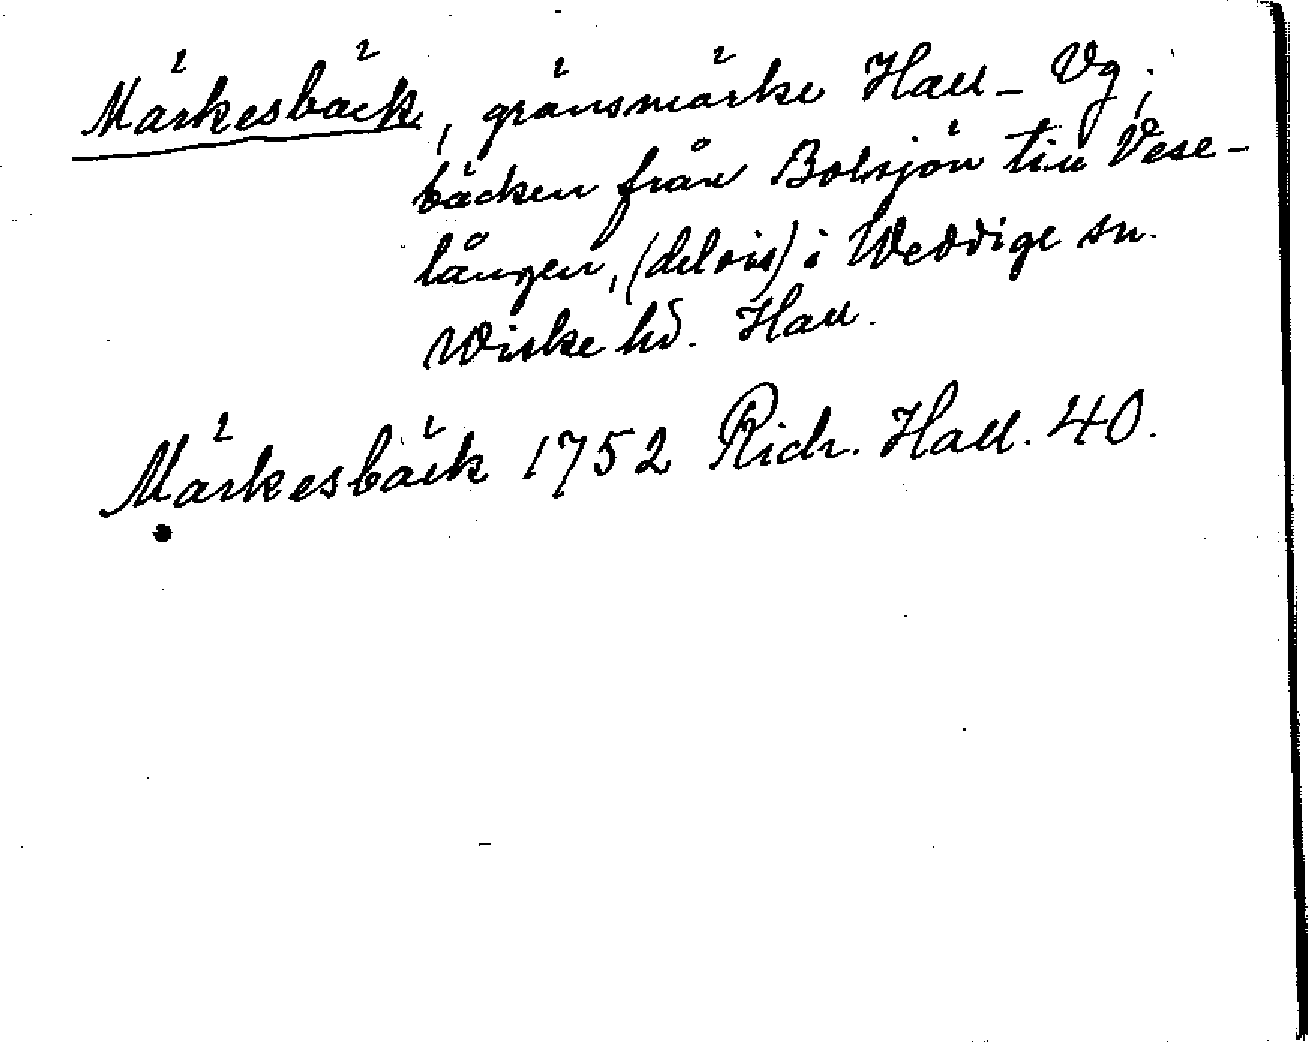 Märkesbäck, gränsmärke Hall - Vg;
bäcken från Bolsjön till Vese-
lången, (delvis) i Weddige sn.
Wiske hd. Hall.
Märkesbäck 1752 Rich. Hall. 40.